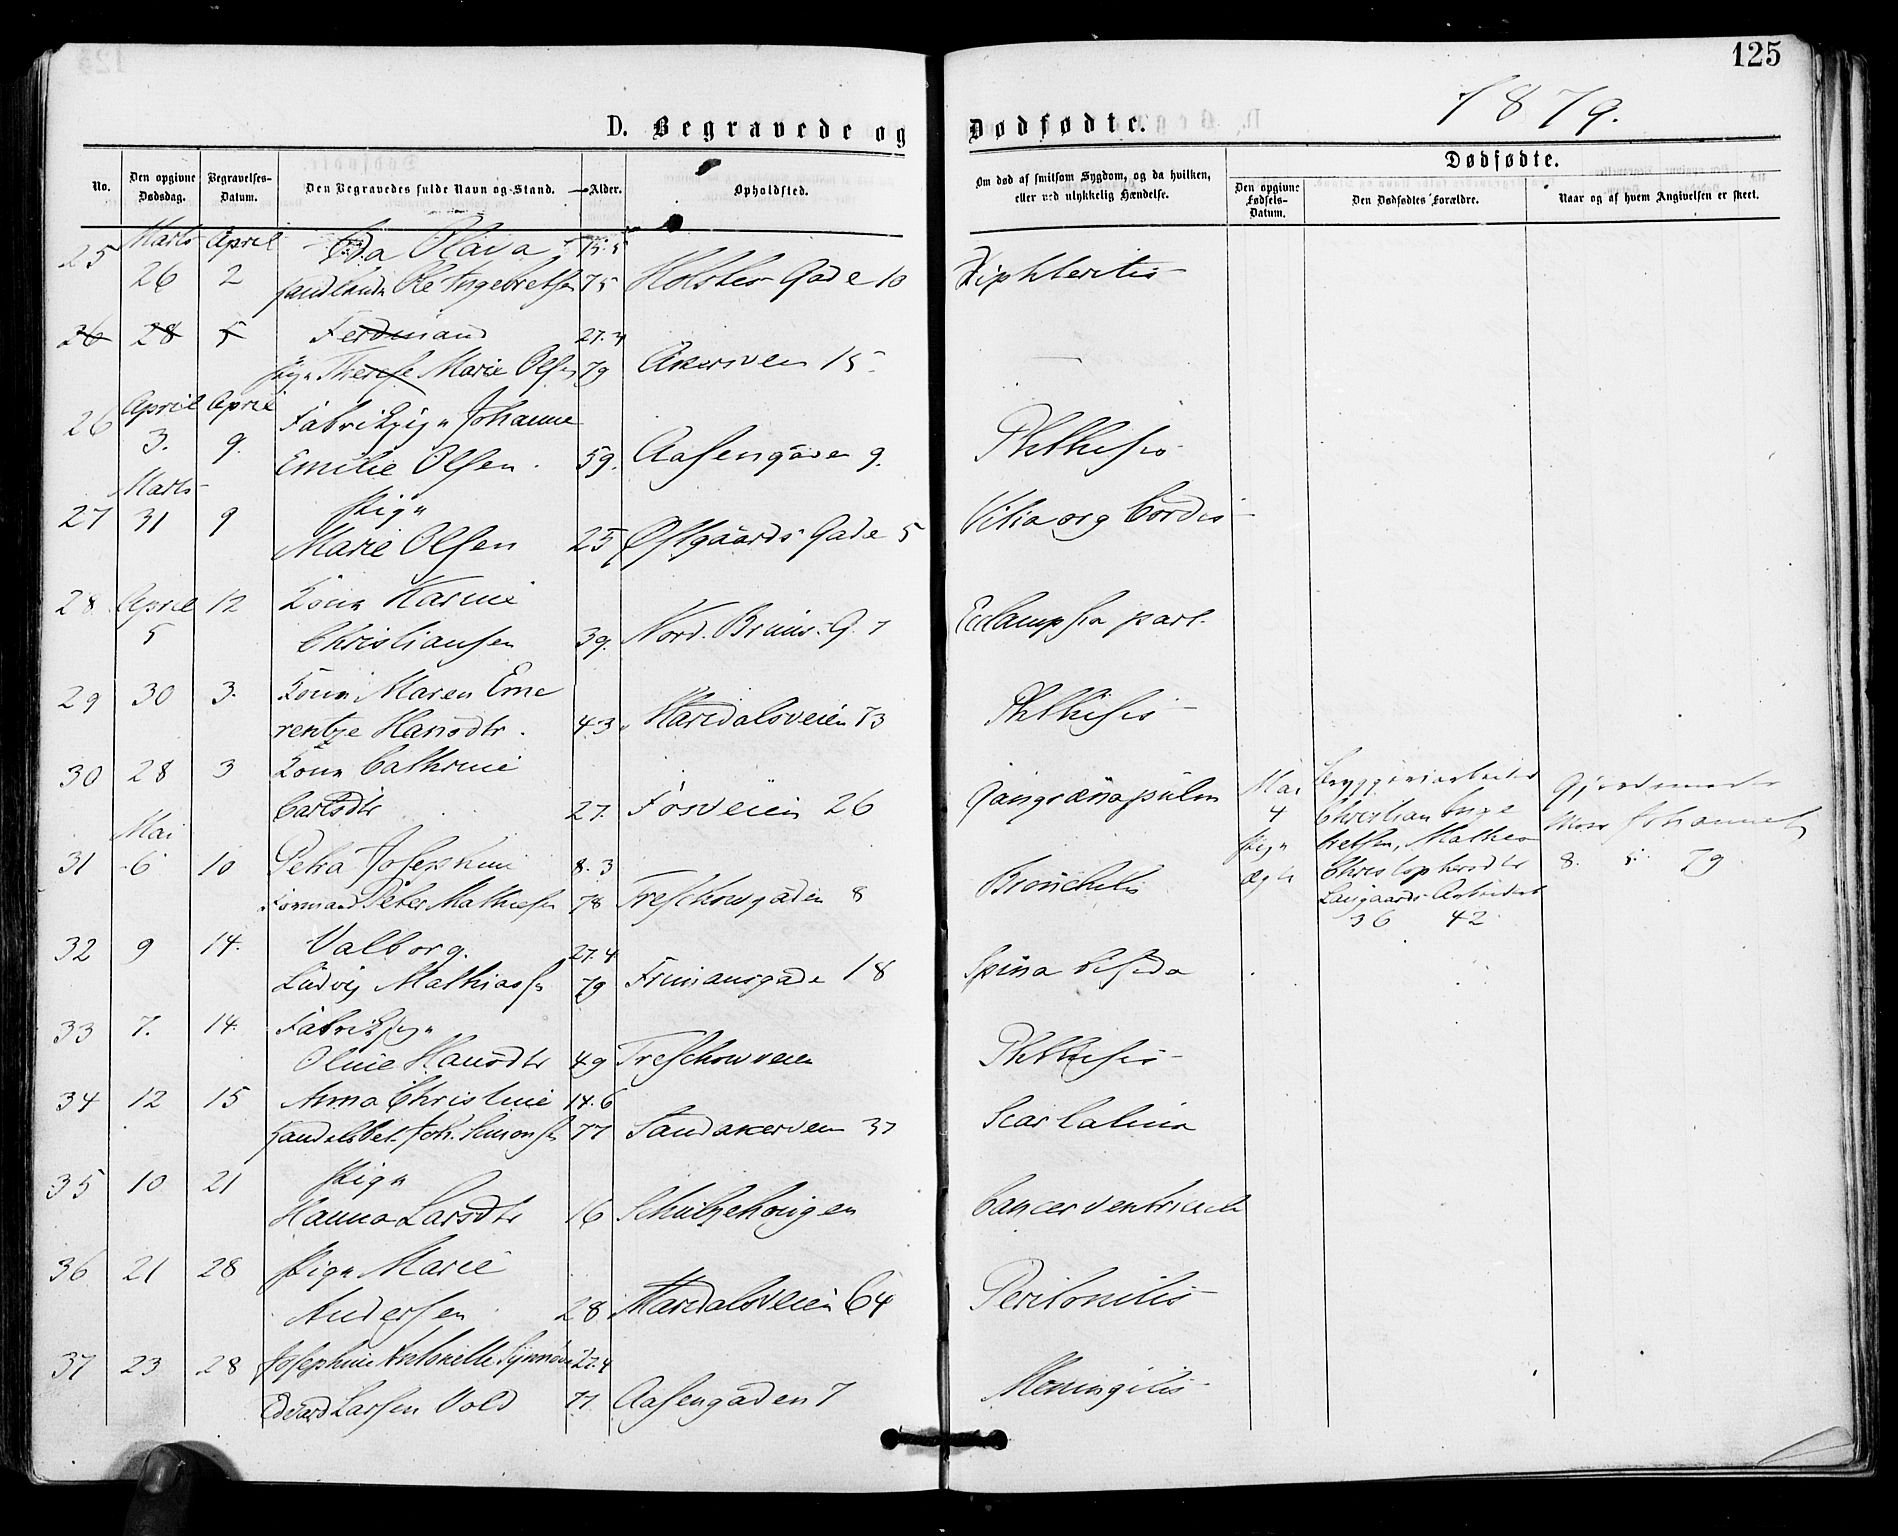 125
1879.
D. Begravede og Dødfødte.
No.
Den opgivne Dødsdag.
Begravelses-Datum.
Den Begravedes fulde Navn og Stand.
Alder.
Opholdsted.
Om død af smitsom Sygdom, og da hvilken, eller ved ulykkelig Hændelse.
Dødfødte.
Den opgivne Fødsels-Datum.
Den Dødfødtes Forældre.
Naar og af hvem Angivelsen er skeet.
Marts April Olava 15.5
25 26 2 Ole Ingebretsen 75 Holsts Gade 10 Diphteritis
26 28 5 Ferdinand 27.3
Pige Therese Marie Olsen 79 Akersveien 15
April April Fabrikpige Johanne
26 3. 9. Emilie Olsen. 59. Aasengaden 9. Phthisis
Marts Pige
27 31 9 Marie Olsen 25 Østgaards Gade 5 Vitia org Cordis
28 April 12 Kone Karine
5 Christiansen 39. Nord. Bruns. G. 7 Eclampsia part.
29 30 3. Kone Maren Eme
rentze Hansdtr. 43 Maridalsveien 73 Phthisis
30 28 3 Kone Cathrine
Carlsdtr 27. Fosveien 26 Gangræna pulm
Mai Bryggeriarbeider Gjordemoder
4 Christian Inge
Pige bretsen, Mathea
Ægte Christophersdtr 8. 5. 79
Arbeidet
36 42
Mai
31 6 10 Petra Josephine 8.3
Formand Peter Mathiesen 78 Treschowsgaden 8 Bronchitis
32 9 14. Valborg. 27.4
Ludvig Mathiassen 79 Frimansgade 18 Spina bifida
33 7. 14. Fabrikpige
Oline Hansdtr 49 Treschowveien Phthisis
34 12 15 Anna Christine 14.6
Handelsbet. Joh. Simonsen 77 Sandakerveien 37 Scarlatina
35 10 21 Pige
Hanna Larsdtr 16 Schultzehougen Cancer ventriculi
36 21 28 Pige Marie
Andersen 28 Maridalsveien 64 Peritonitis
37 23 28 Josephine Antonette Synnøve 22.4
Edvard Larsen Vold 77 Aasengaden 7 Meningitis